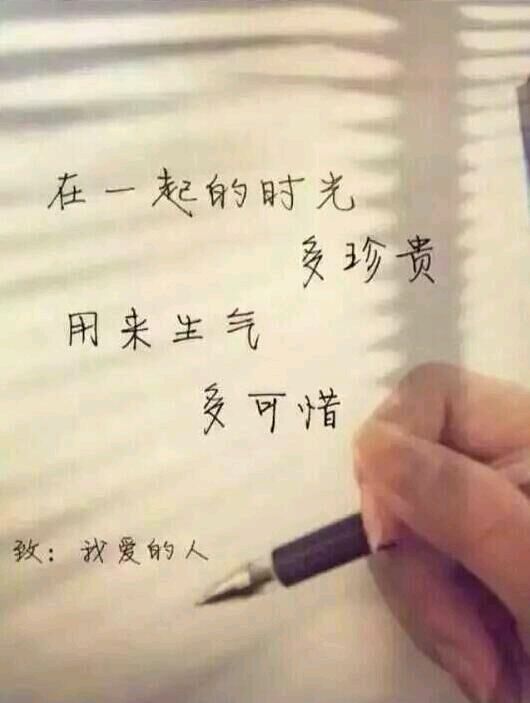 在一起的时光
多珍贵
用来生气
多可惜
致：我爱的人